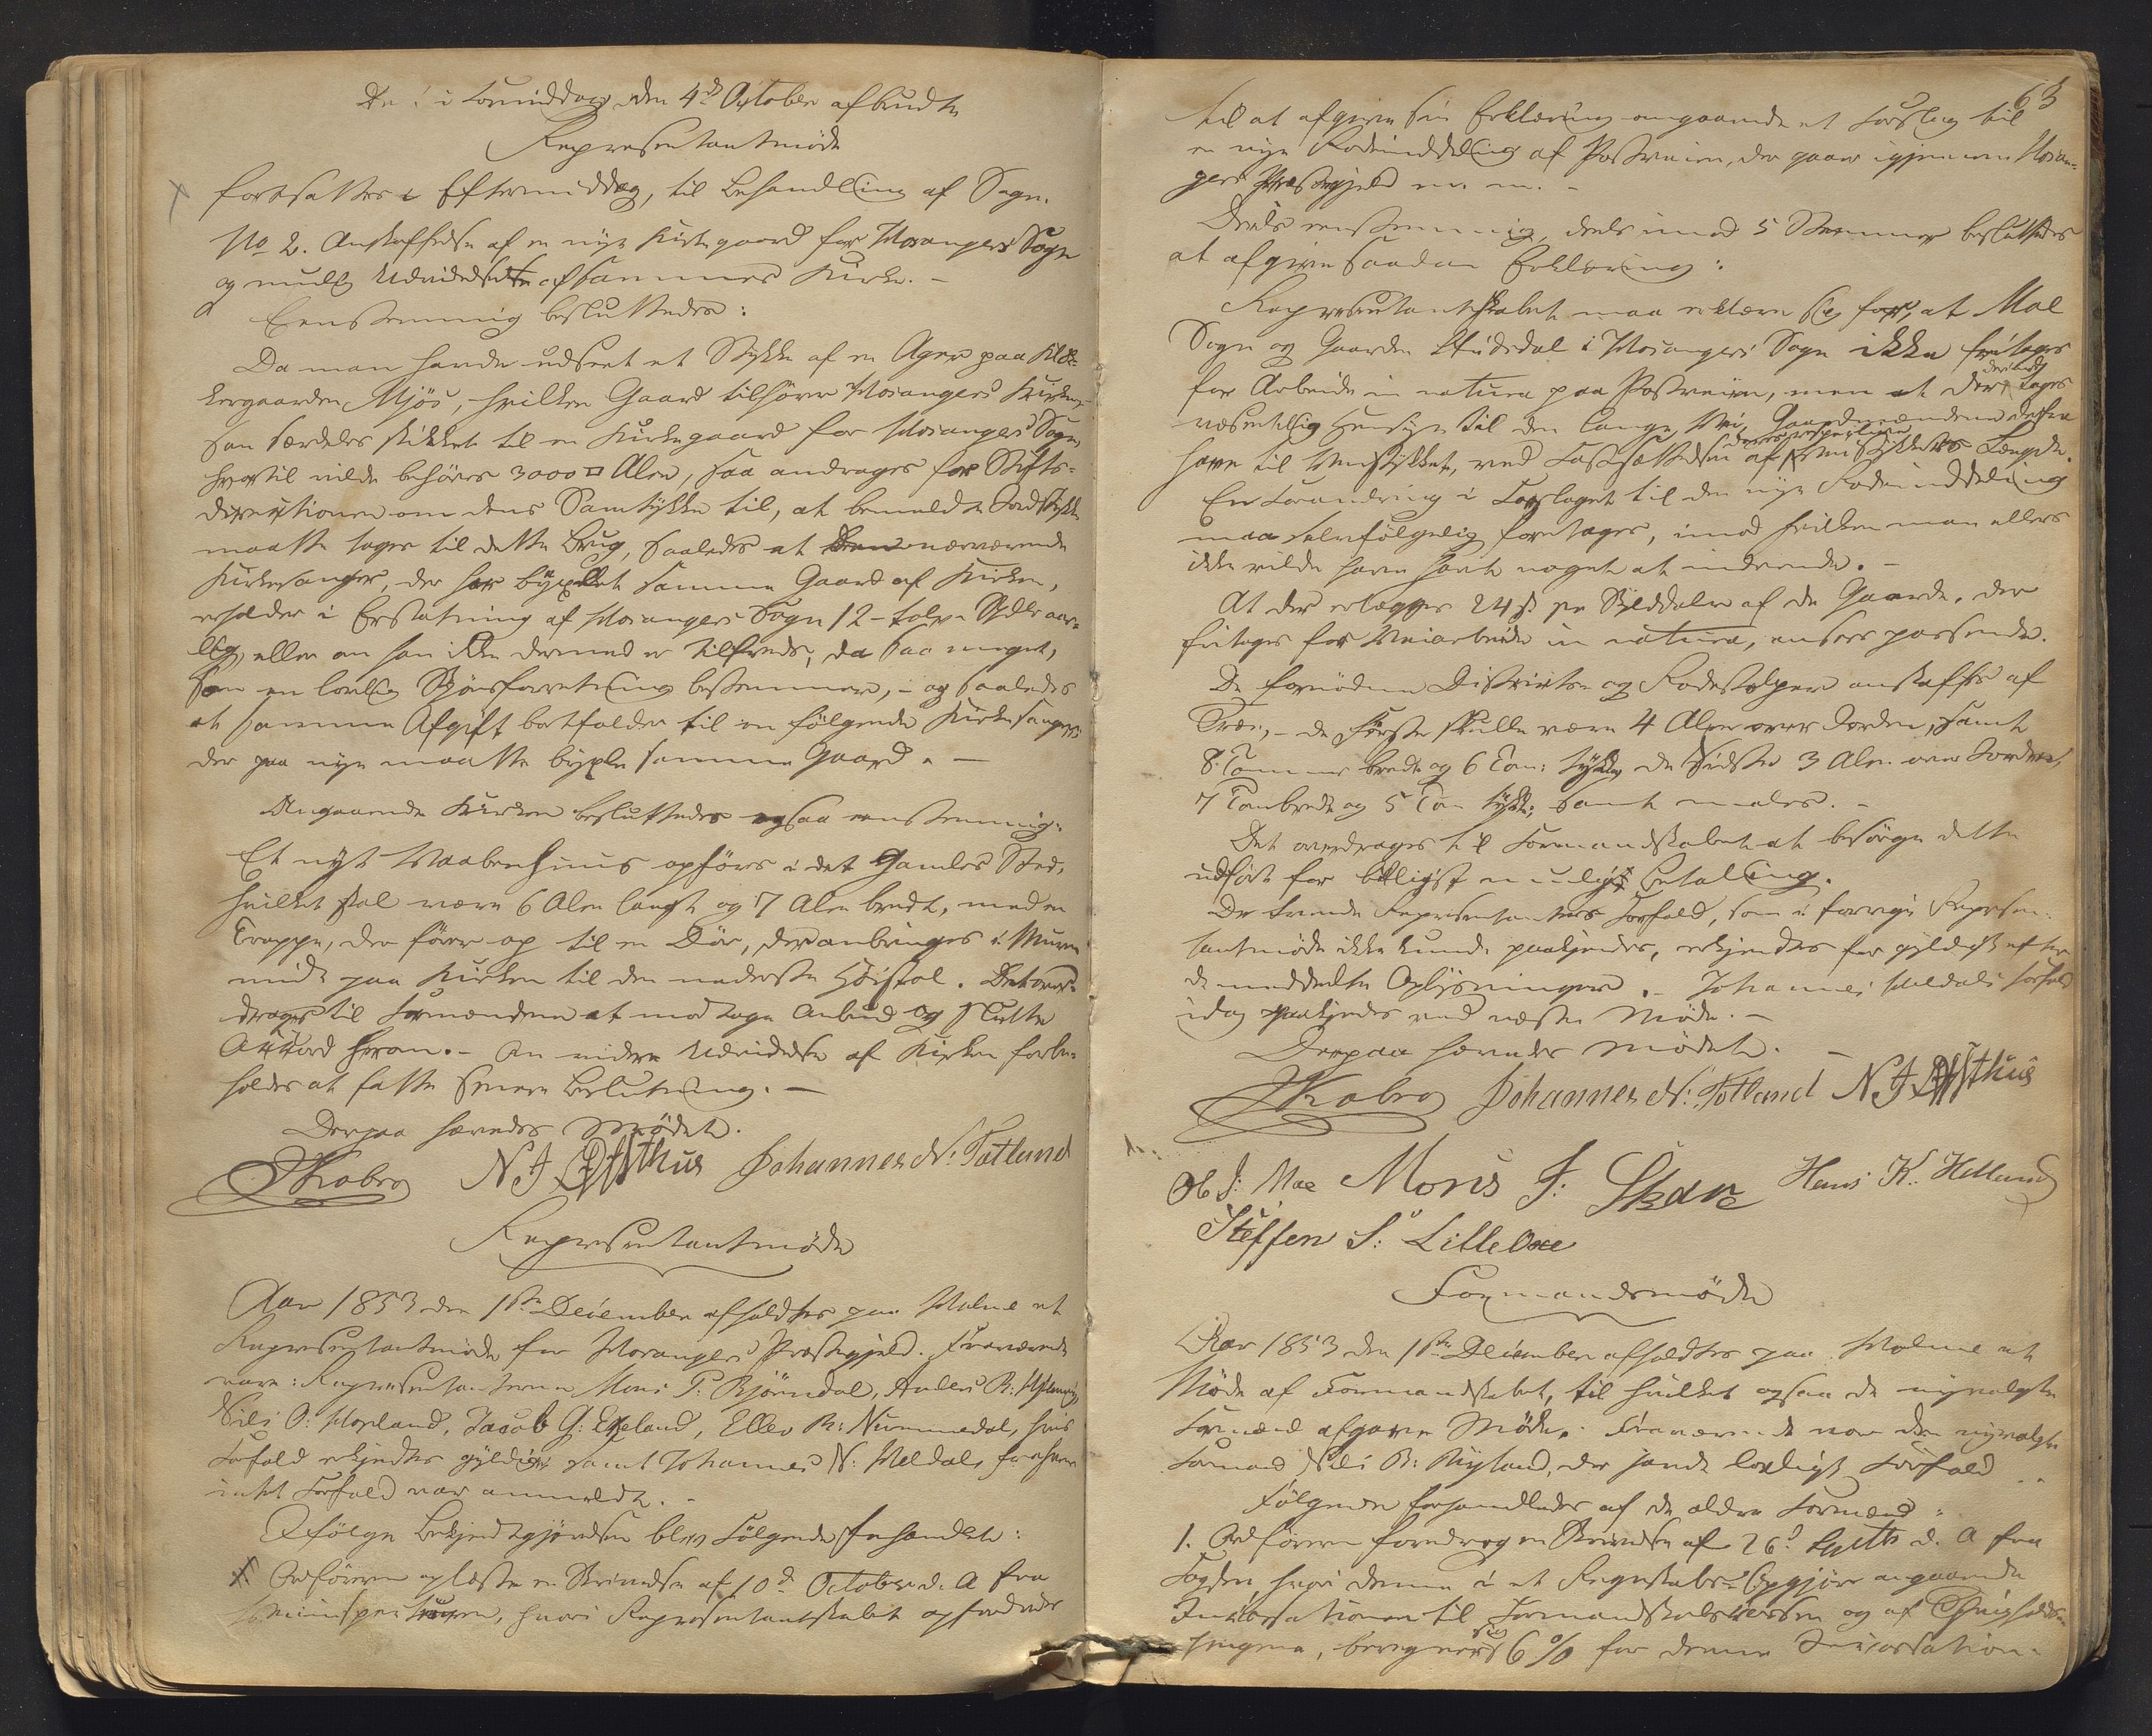 De i Formiddag den 4de October afbrudte
Representantmøde
fortsattes i Eftermiddag, til Behandling af Sagn.
No 2. Anskaffelse af en nye Kirkegaard for Hosangers Sogn
og mulig Udvidelse af sammes Kirke. -
Eenstemmig besluttedes:
Da man havde udseet et Stykke af en Ager paa Klok-
kergaarden Mjøs, hvilken Gaard tilhører Hosangers Kirke,
som særdeles skikket til en Kirkegaard for Hosangers Sogn,
hvortil vilde behøves 3000 □ Alen, saa andrages for Stifts-
directionen om dens Samtykke til, at bemeldte Jordstykke
maatte tages til dette Brug, saaledes at nærværende
Kirkesanger, der har byxlet samme Gaard af Kirken,
erholder i Erstatning af Hosangers Sogn 12 - tolv - Spdlr aar-
lig, eller om han ikke dermed er tilfreds, da saa meget,
som en lovlig Skjønsforretning bestemmer, - og saaledes
at samme Afgift bortfalder til en følgende Kirkesanger,
der paa nye maatte byxle samme Gaard. -
Angaaende Kirken besluttedes ogsaa eenstemmig:
Et nyt Vaabenhuus opføres i det Gamles Sted,
hvilket skal være 6 Alen langt og 7 Alen bredt, med en
Trappe, der fører op til en Dør, der anbringes i Muren
midt paa Kirken til den nederste Høistol. Det over-
drages til Formændene at modtage Anbud og slutte
Accord herom. - Om videre Udvidelse af Kirken forbe-
holdes at fatte senere Beslutning. -
Derpaa hævedes Mødet.
JKobro NJ Østhus Johannes N: Totland
Representantmøde
Aar 1853 den 1ste December afholdtes paa Holme et
Representantmøde for Hosangers Præstegjeld. Fraværende
vare: Representanterne Mons P: Bjørndal, Anders B:
Nils O: Hopland, Jacob G: Eikeland, Ellev R: Nummedal, hvis
Forfald erkjendtes gyldigt samt Johannes N: Meldal, for hvem
intet Forfald var anmeldt. -
Ifølge Bekjendtgjørelse blev Følgende forhandlet:
1. Ordføreren oplæste en Skrivelse af 10de October d. A fra
Veiinspecteuren, hvori Representantskabet opfordredes
63
til at afgive sin Erklæring angaaende et Forslag til
en nye Rodeinddeling af Postveien, der gaaer igjennem Hosan-
gers Præstegjeld m. m. -
Deels eenstemmig, deels imod 5 Stemmer besluttedes
at afgive saadan Erklæring:
Representantskabet maa erklære sig for, at Moe
Sogn og Gaarden i Hosangers Sogn ikke fritages
for Arbeide in natura paa Postveien, men at der tages
væsentlig Hensyn til den lange Vei, Gaardmændene derfra
have til Veistykket, ved Fastsættelsen af Veistykkets Længde.
En Forandring i Forslaget til den nye Rodeinddeling
maa selvfølgelig foretages, imod hvilken man ellers
ikke vilde have havt noget at indvende. -
At der erlægges 24 ß pr Skylddaler af de Gaarde, der
fritages for Veiarbeide in natura, ansees passende.
De fornødne Districts- og Rodestolper anskaffes af
Træ, - de første skulle være 4 Alen over Jorden, samt
8 Tommer brede og 6 Tom: tykke, de sidste 3 Alen over Jorden,
7 Tom brede og 5 Tom tykke, samt males. -
Det overdrages til Formandskabet at besørge dette
udført for billigst muligt Betaling.
De Representanters Forfald, som i forrige Represen-
tantmøde ikke kunde paakjendes, erkjendtes for gyldigt efter
de meddeelte Oplysninger. - Johannes Meldals Forfald
idag paakjendes ved næste Møde. -
Derpaa hævedes Mødet. -
JKobro Johannes N: Totland NJ Østhus
Ole J: Moe Mons J: Skar Hans K: Helland
Steffen S: LilleOne
Formandsmøde
Aar 1853 den 1ste December afholdtes paa Holme et
Møde af Formandskabet, til hvilket ogsaa de nyvalgte
Formænd afgave Møde. Fraværende var den nyvalgte
Formand Nils R: Myland, der havde lovligt Forfald. -
Følgende forhandledes af de ældre Formænd:
1. Ordføreren foredrog en Skrivelse af 26de d. A fra
Fogden, hvori denne i et Regnskabs-Opgjør angaaende
Incassationen til Formandskabskassen og af
, beregner sig 6 % for denne Incassation.